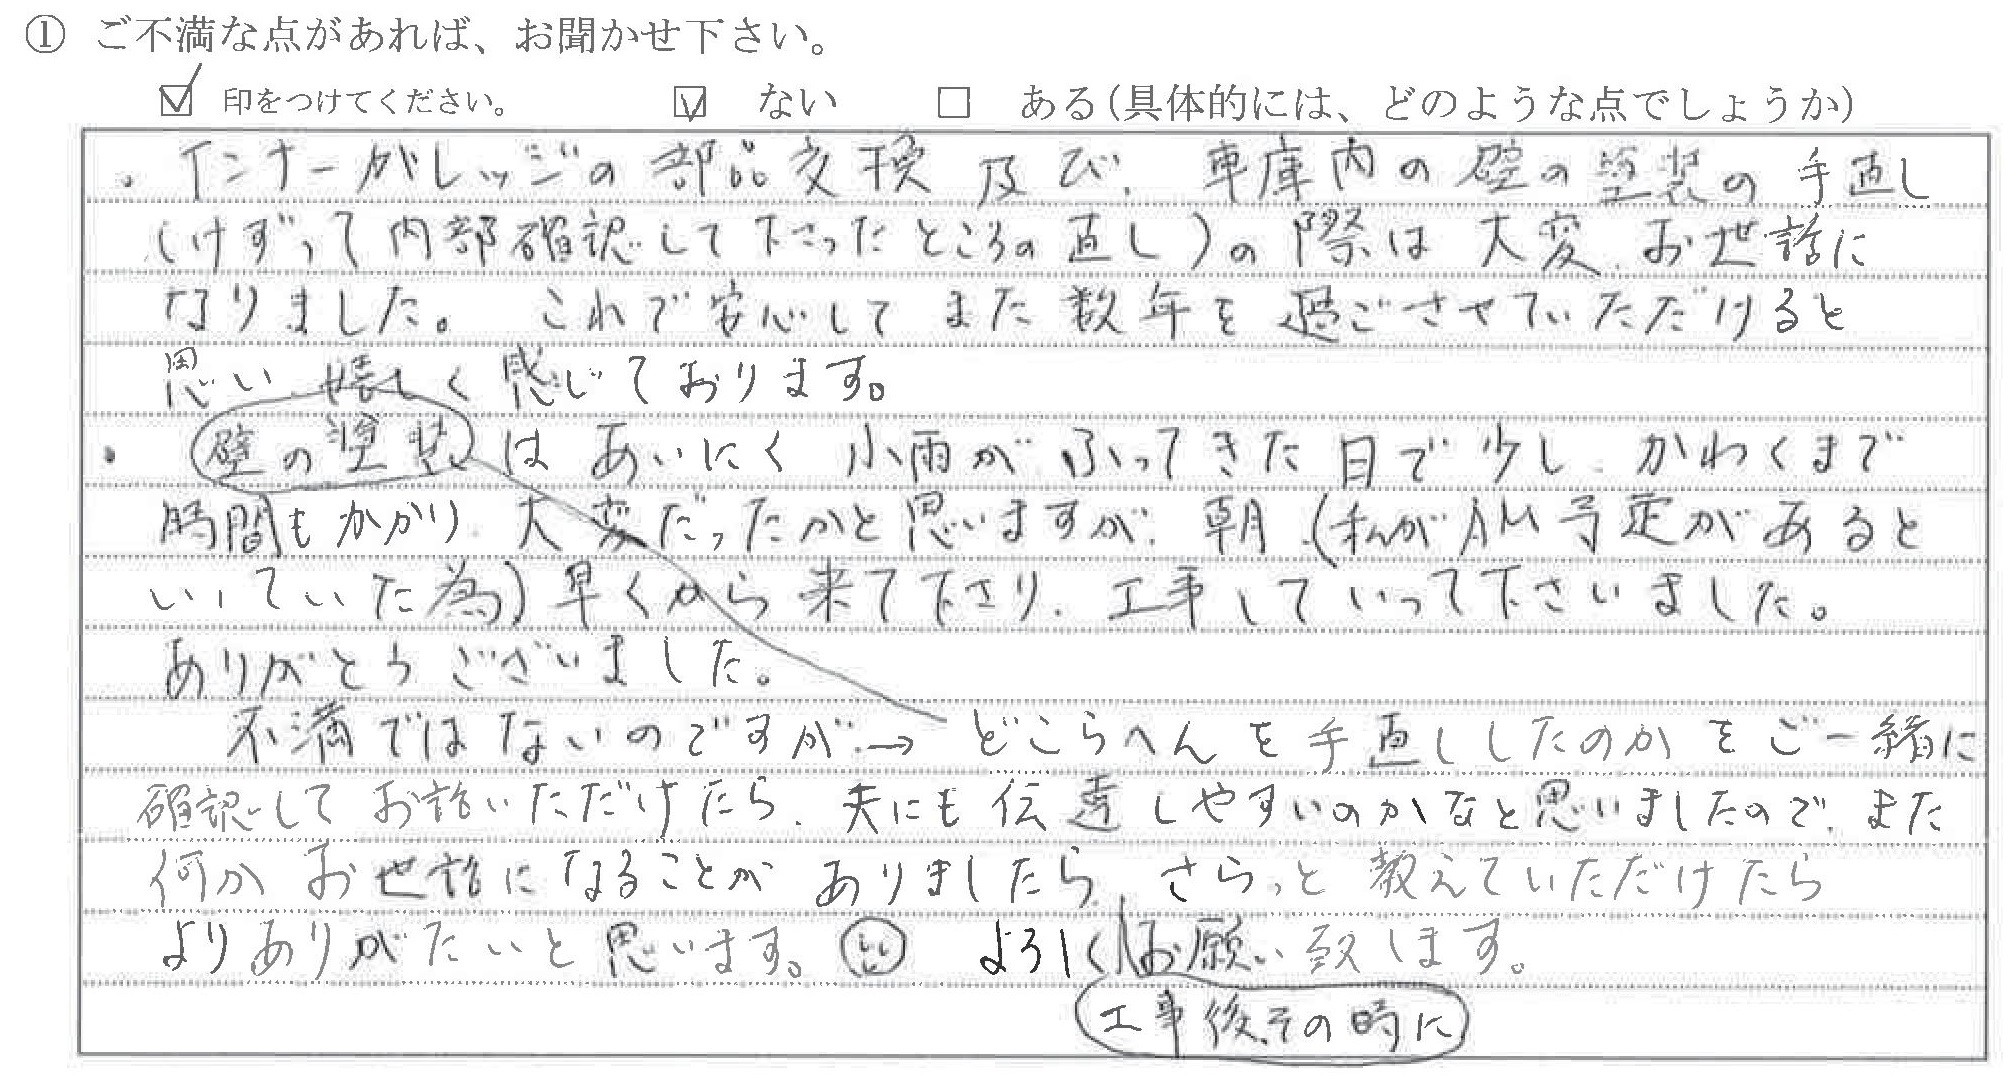 ① ご不満な点があれば、お聞かせ下さい。
☑ 印をつけてください。 ☑ ない □ ある(具体的には、どのような点でしょうか)
・インナーガレッジの部品交換及び、車庫内の壁の塗装の手直し
(けずって内部確認して下さったところの直し)の際は大変、お世話に
なりました。これで安心してまた数年を過ごさせていただけると
思い、嬉しく感じております。
・壁の塗装はあいにく小雨がふってきた日で少し、かわくまで
時間もかかり、大変だったかと思いますが、朝、(私がAM予定があると
いっていた為)早くから来て下さり、工事していって下さいました。
ありがとうございました。
不満ではないのですが、→ どこらへんを手直ししたのかをご一緒に
確認してお話いただけたら、夫にも伝達しやすいのかなと思いましたので、また
何かお世話になることがありましたら、さらっと教えていただけたら
よりありがたいと思います。よろしくお願い致します。
工事後、その時に